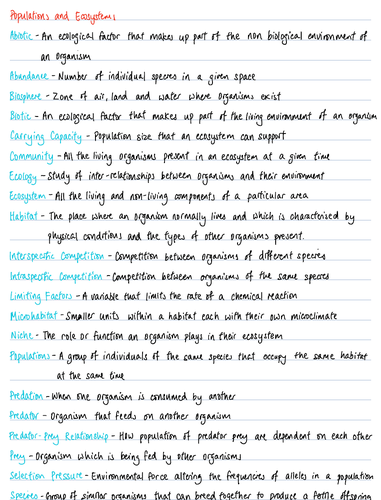 Populations and Ecosystems
Abiotic - An ecological factor that makes up part of the non biological environment of
an organism
Abundance - Number of individual species in a given space
Biosphere - Zone of air, land and water where organisms exist
Biotic - An ecological factor that makes up part of the living environment of an organism
Carrying Capacity - Population size that an ecosystem can support
Community - All the living organisms present in an ecosystem at a given time
Ecology - Study of inter-relationships between organisms and their environment
Ecosystem - All the living and non-living components of a particular area
Habitat - The place where an organism normally lives and which is characterised by
physical conditions and the types of other organisms present.
Interspecific Competition - Competition between organisms of different species
Intraspecific Competition - Competition between organisms of the same species
Limiting Factors - A variable that limits the rate of a chemical reaction
Microhabitat - Smaller units within a habitat each with their own microclimate
Niche - The role or function an organism plays in their ecosystem
Populations - A group of individuals of the same species that occupy the same habitat
at the same time
Predation - When one organism is consumed by another
Predator - Organism that feeds on another organism
Predator-Prey Relationship - How population of predator prey are dependent on each other
Prey - Organism which is being fed by other organisms
Selection Pressure - Environmental force altering the frequencies of alleles in a population
Species - Group of similar organisms that can breed together to produce a fertile offspring